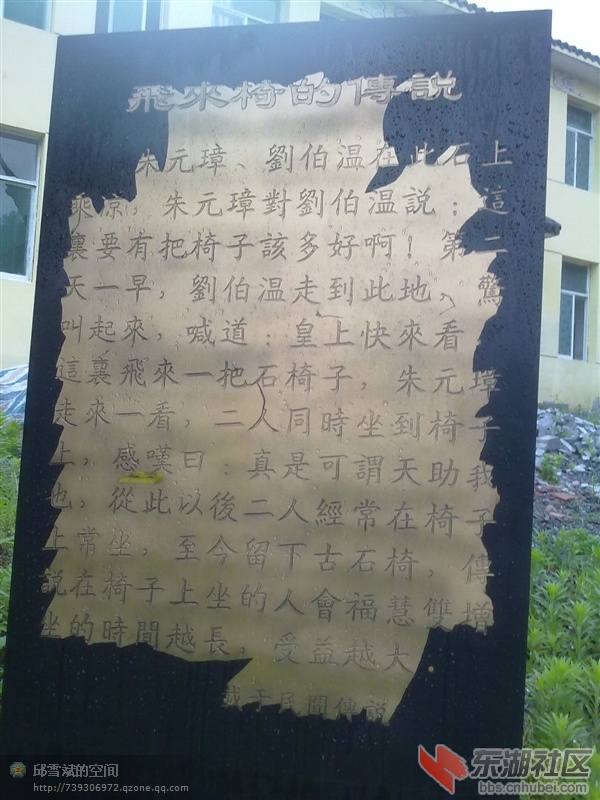 飛來椅的傳說
朱元璋、劉伯温在此石上
乘凉，朱元璋對劉伯温説：這
裏要有把椅子該多好啊！第二
天一早，劉伯温走到此地、驚
叫起來，喊道：皇上快來看，
這裏飛來一把石椅子，朱元璋
走來一看，二人同時坐到椅子
上，感嘆曰：真是可謂天助我
也，從此以後二人經常在椅子
上常坐，至今留下古石椅，傳
説在椅子上坐的人會福慧雙增
坐的時間越長，受益越大
載于民間傳説
邱雪斌的空间
http://739306972.qzone.qq.com
东湖社区
bbs.cnhubei.com